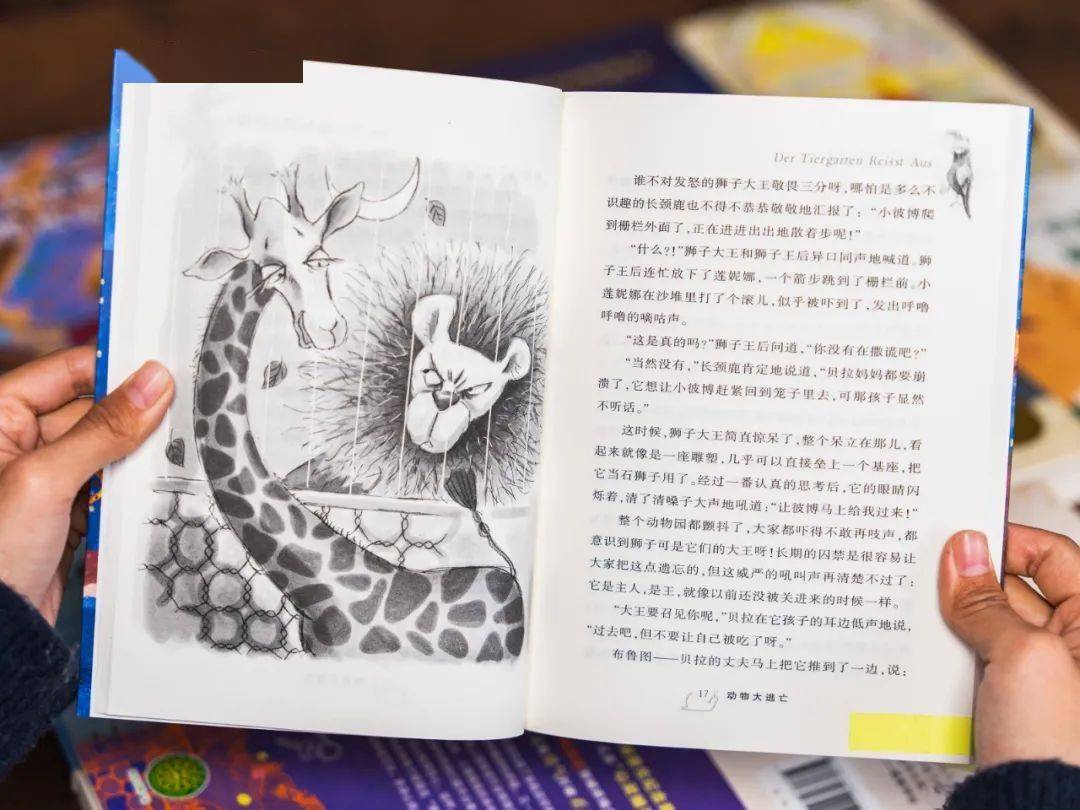 Der Tiergarten Reisst Aus
谁不对发怒的狮子大王敬畏三分呀，哪怕是多么不
识趣的长颈鹿也不得不恭恭敬敬地汇报了：“小彼博爬
到栅栏外面了，正在进进出出地散着步呢！”
“什么？！”狮子大王和狮子王后异口同声地喊道。狮
子王后连忙放下了莲妮娜，一个箭步跳到了栅栏前。小
莲妮娜在沙堆里打了个滚儿，似乎被吓到了，发出呼噜
呼噜的嘀咕声。
“这是真的吗？”狮子王后问道，“你没有在撒谎吧？”
“当然没有，”长颈鹿肯定地说道，“贝拉妈妈都要崩
溃了，它想让小彼博赶紧回到笼子里去，可那孩子显然
不听话。”
这时候，狮子大王简直惊呆了，整个呆立在那儿，看
起来就像是一座雕塑，几乎可以直接垒上一个基座，把
它当石狮子用了。经过一番认真的思考后，它的眼睛闪
烁着，清了清嗓子大声地吼道：“让彼博马上给我过来！”
整个动物园都颤抖了，大家都吓得不敢再吱声，都
意识到狮子可是它们的大王呀！长期的囚禁是很容易让
大家把这点遗忘的，但这威严的吼叫声再清楚不过了：
它是主人，是王，就像以前还没被关进来的时候一样。
“大王要召见你呢，”贝拉在它孩子的耳边低声地说，
“过去吧，但不要让自己被吃了呀。”
布鲁图——贝拉的丈夫马上把它推到了一边，说：
17 动物大逃亡